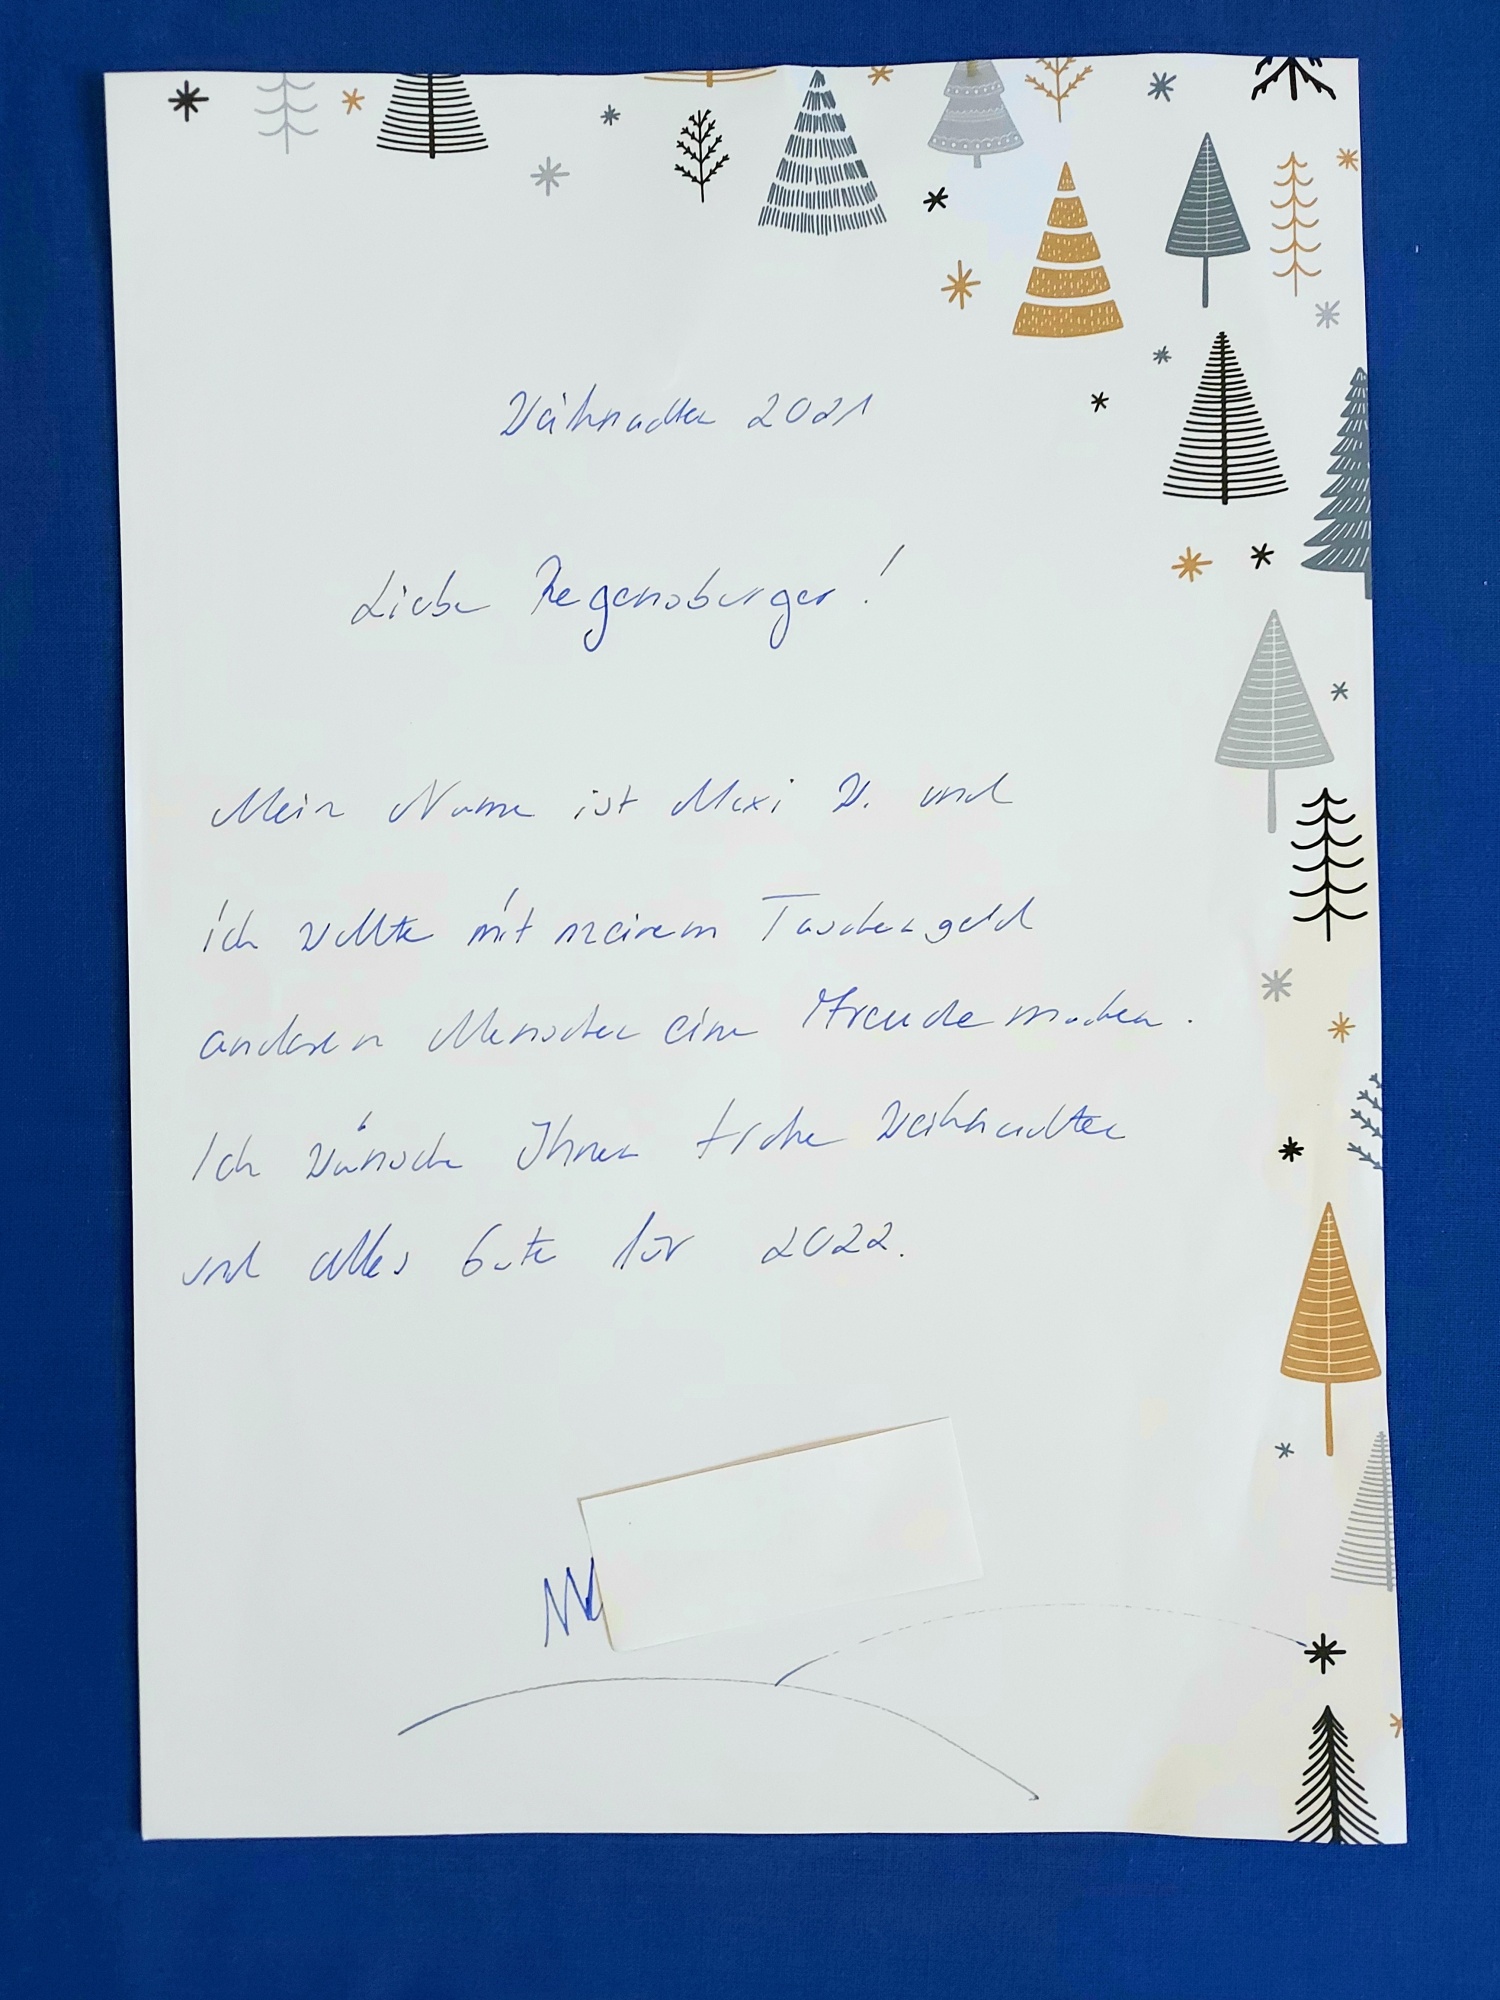 Weihnachten 2021
Liebe Regensburger!
Mein Name ist Maxi W. und
ich wollte mit meinem Taschengeld
anderen Menschen eine Freude machen.
Ich wünsche Ihnen frohe Weihnachten
und alles Gute für 2022.